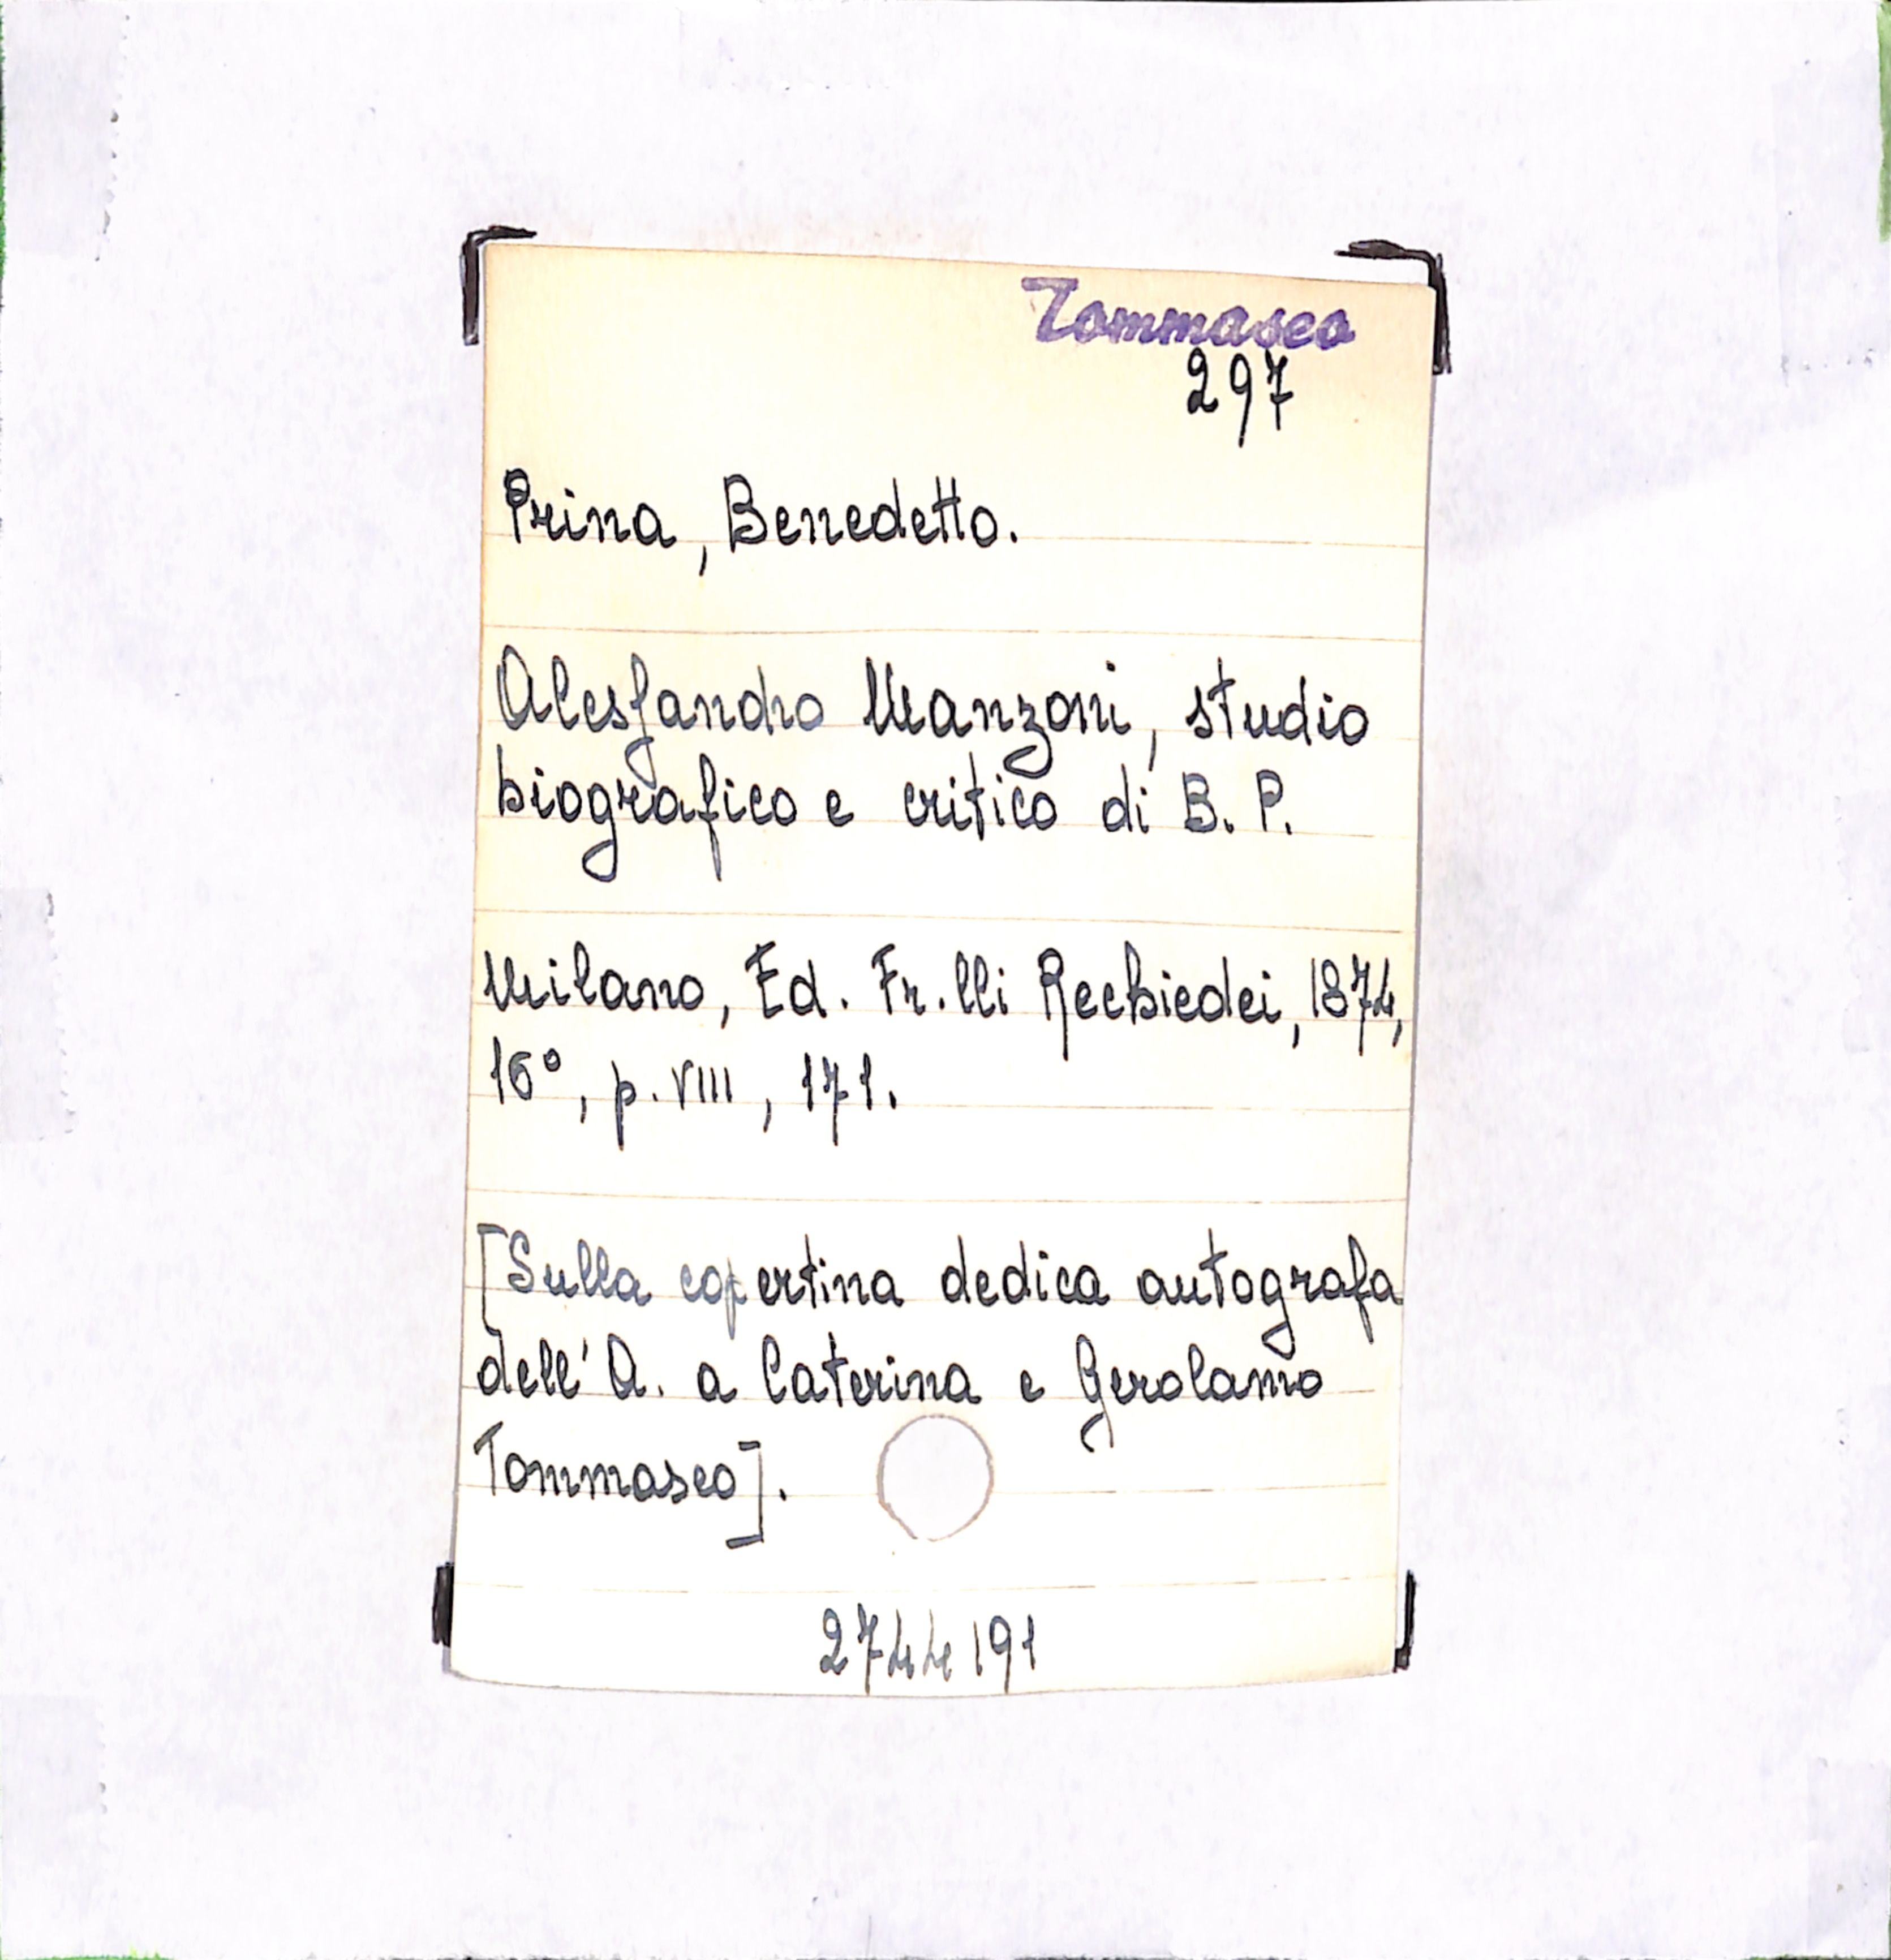 Tommaseo
297
Prina, Benedetto.
Alessandro Manzoni, studio
biografico e critico di B. P.
Milano, Ed. Fr.lli Rechiedei, 1874,
16°, p. VIII, 171.
[Sulla copertina dedica autografa
dell'A. a Caterina e Gerolamo
Tommaseo].
2744191